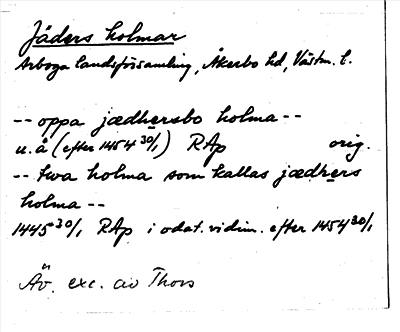 Jäders holmar
Arboga landsförsamling, Åkerbo hd, Västm. l.
-- oppa jædhersbo holma --
u.å (efter 1454 30/1) RAp orig.
-- twa holma som kallas jædhers
holma --
1445 30/1 RAp i odat. vidim. efter 1454 30/1
Äv. exc. av Thors